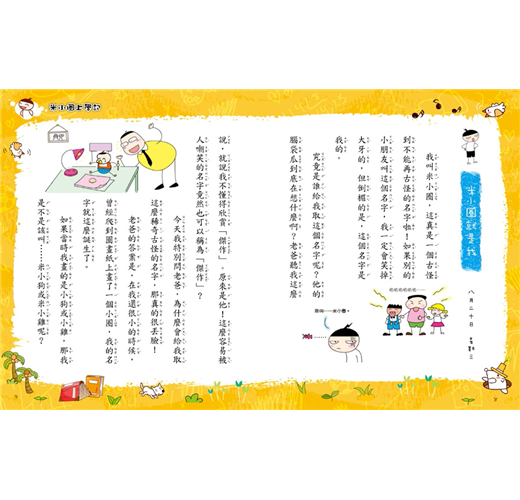 米小圈上學記
米小圈就是我
八月二十日
我叫米小圈，這真是一個古怪
到不能再古怪的名字啦！如果別的
小朋友叫這個名字，我一定會笑掉
大牙的，但倒楣的是，這個名字是
我的。
究竟是誰給我取這個名字呢？他的
腦袋瓜到底在想什麼啊？老爸聽我這麼
說，就說我不懂得欣賞「傑作」。原來是他！這麼容易被
人嘲笑的名字竟然也可以稱為「傑作」？
今天我特別問老爸，為什麼會給我取
這麼稀奇古怪的名字，那真的很丟臉！
老爸的答案是，在我還很小的時候，
曾經爬到圖畫紙上畫了一個小圈，我的名
字就這麼誕生了。
如果當時我畫的是小狗或小雞，那我
是不是該叫……米小狗或米小雞呢？